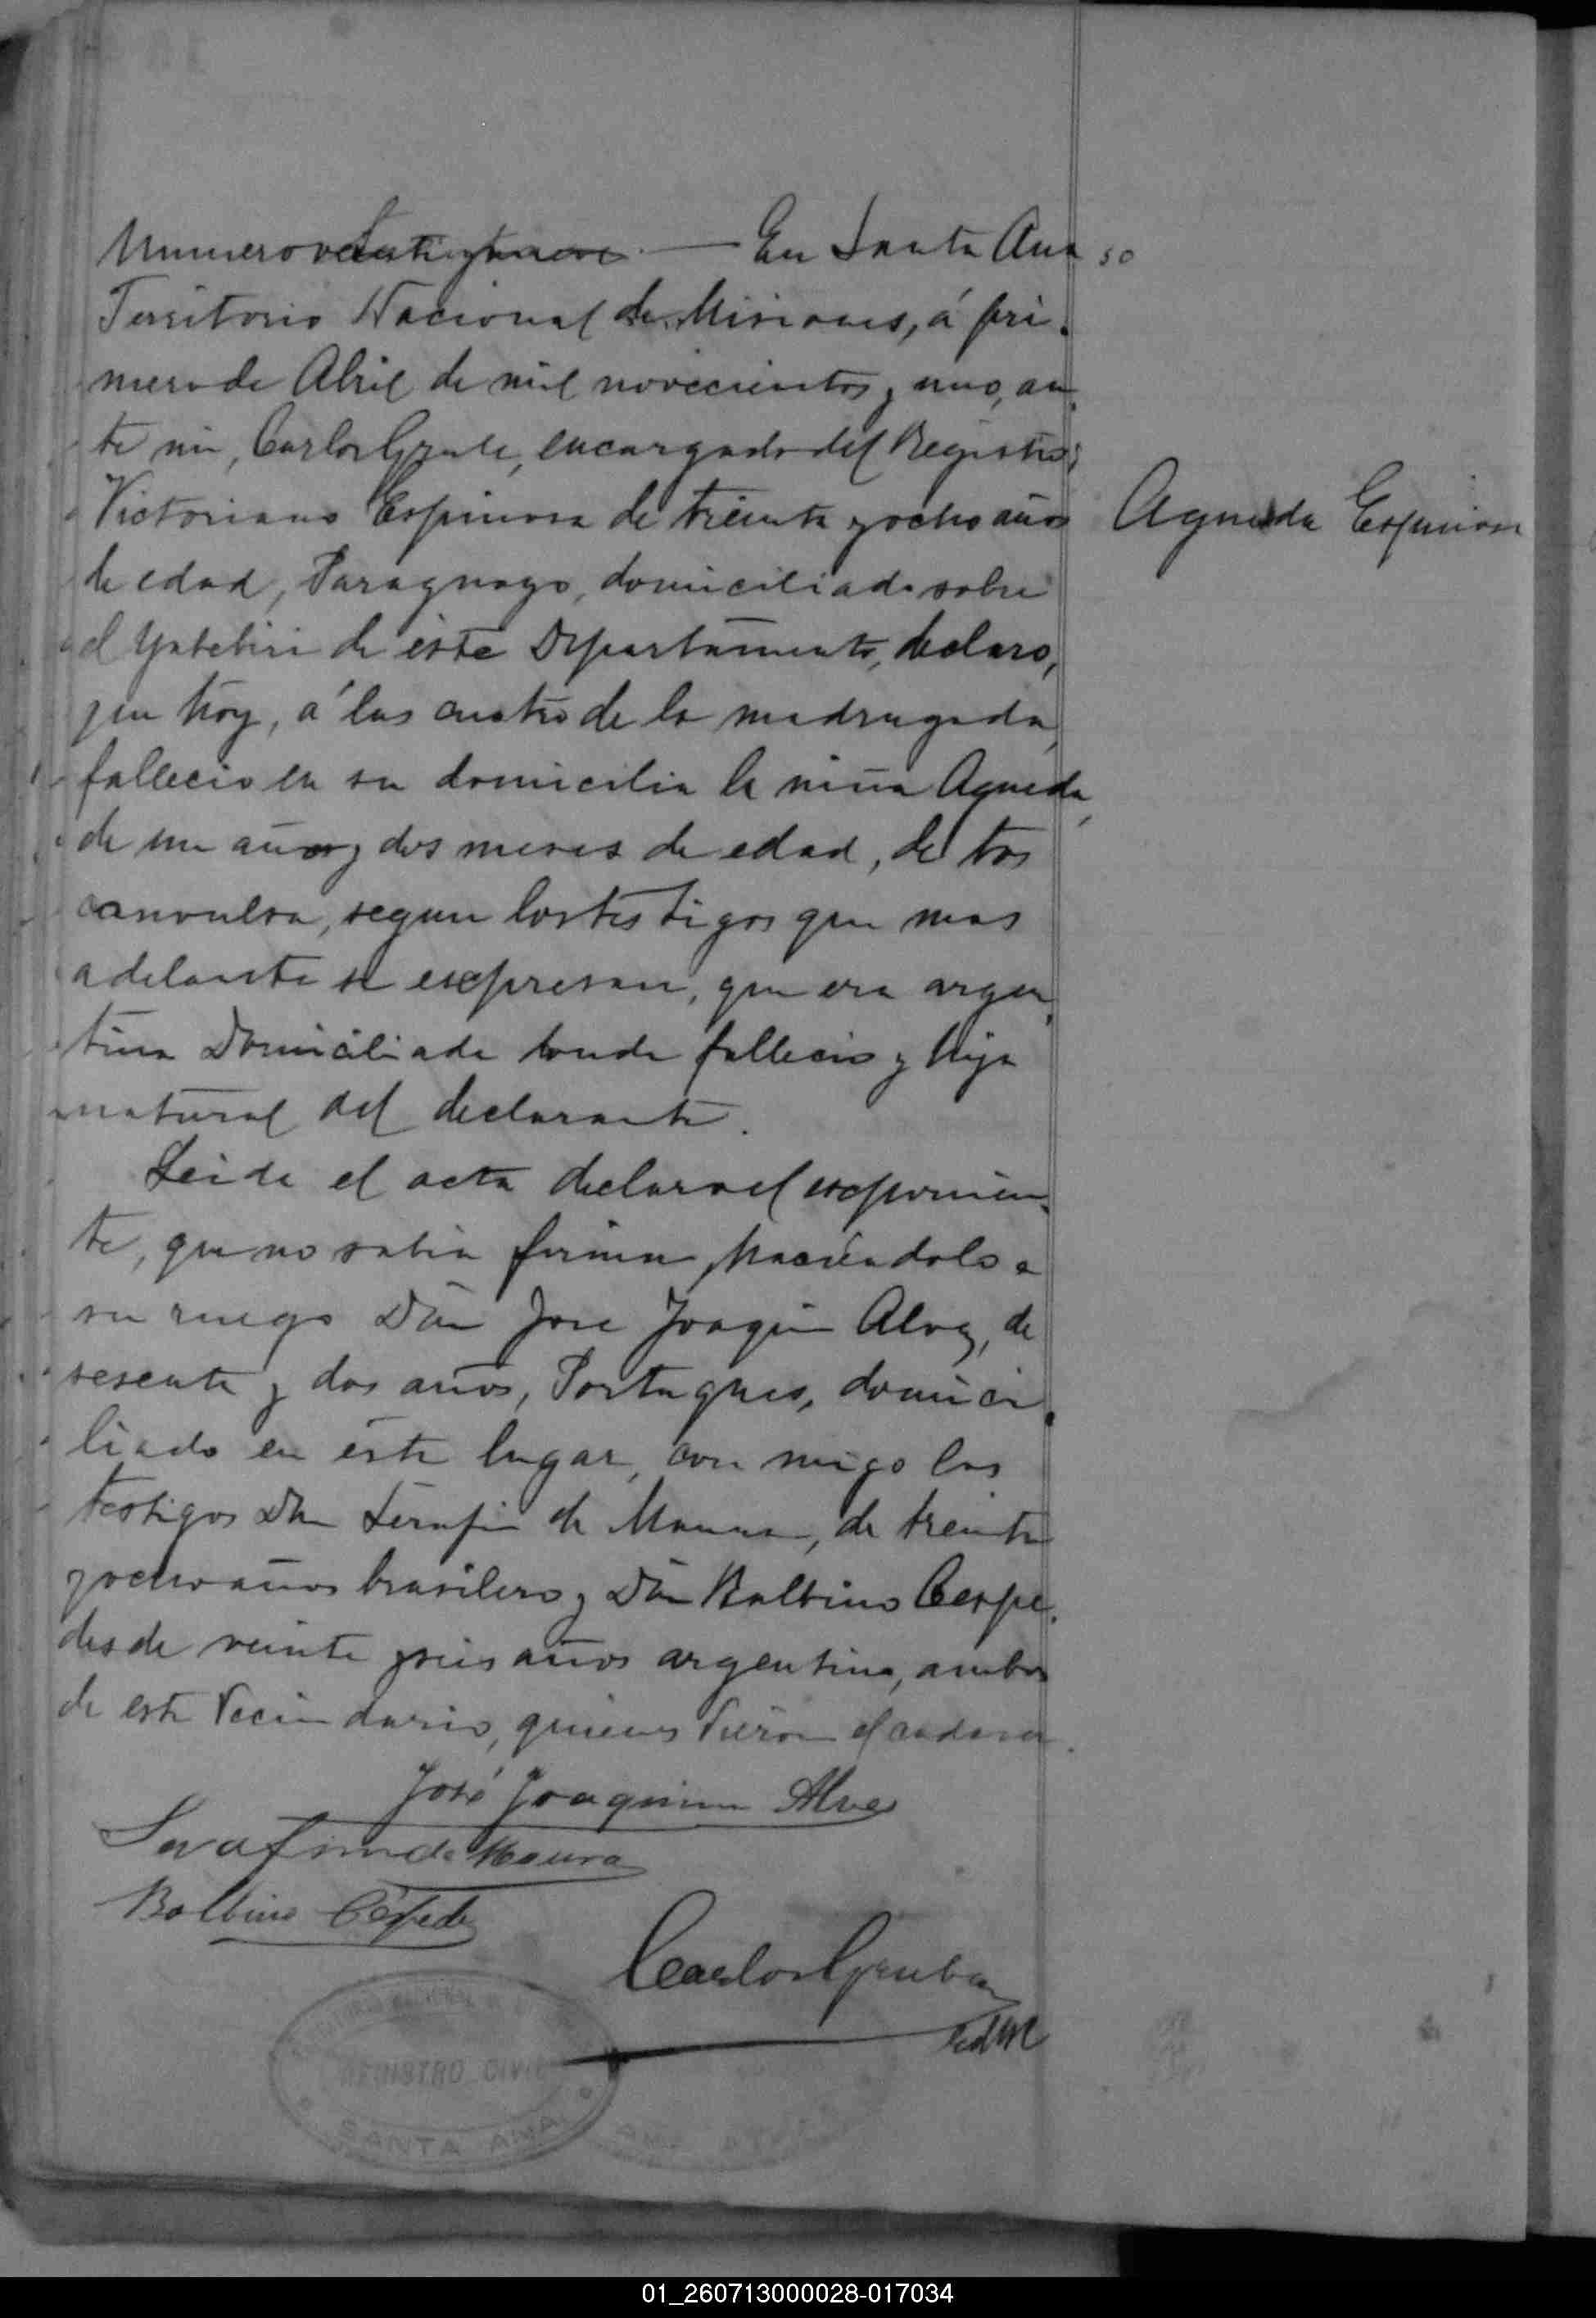 Numero veintinueve. — En Santa Ana 30
Territorio Nacional de Misiones, á pri-
mero de Abril de mil novecientos y uno, an-
te mi, Carlos Grube, encargado del Registro;
Victoriano Espinosa de treinta y ocho años
Agueda Espinosa
de edad, Paraguayo, domiciliado sobre
el Yabebiri de éste Departamento, declaro,
que hoy, á las cuatro de la madrugada,
fallecio en su domicilio la niña Agueda,
de un año y dos meses de edad, de tos
convulsa, segun los testigos que mas
adelante se expresan, que era argen-
tina Domiciliada donde fallecio y hija
natural del declarante.
Leida el acta declaro el exponien-
te, que no sabia firmar, haciendolo a
su ruego Don Jose Joaquin Alvez, de
sesenta y dos años, Portugues, domici-
liado en éste lugar, con migo los
testigos Don Serafin de Moura, de treinta
y ocho años brasilero y Don Balbino Cespe-
des de veinte y seis años argentino, ambos
de este Vecindario, quienes vieron el cadaver.
José Joaquim Alves
Serafim de Moura
Balbino Céspedes
Carlos Grube
REGISTRO CIVIL
SANTA ANA
01_260713000028-017034